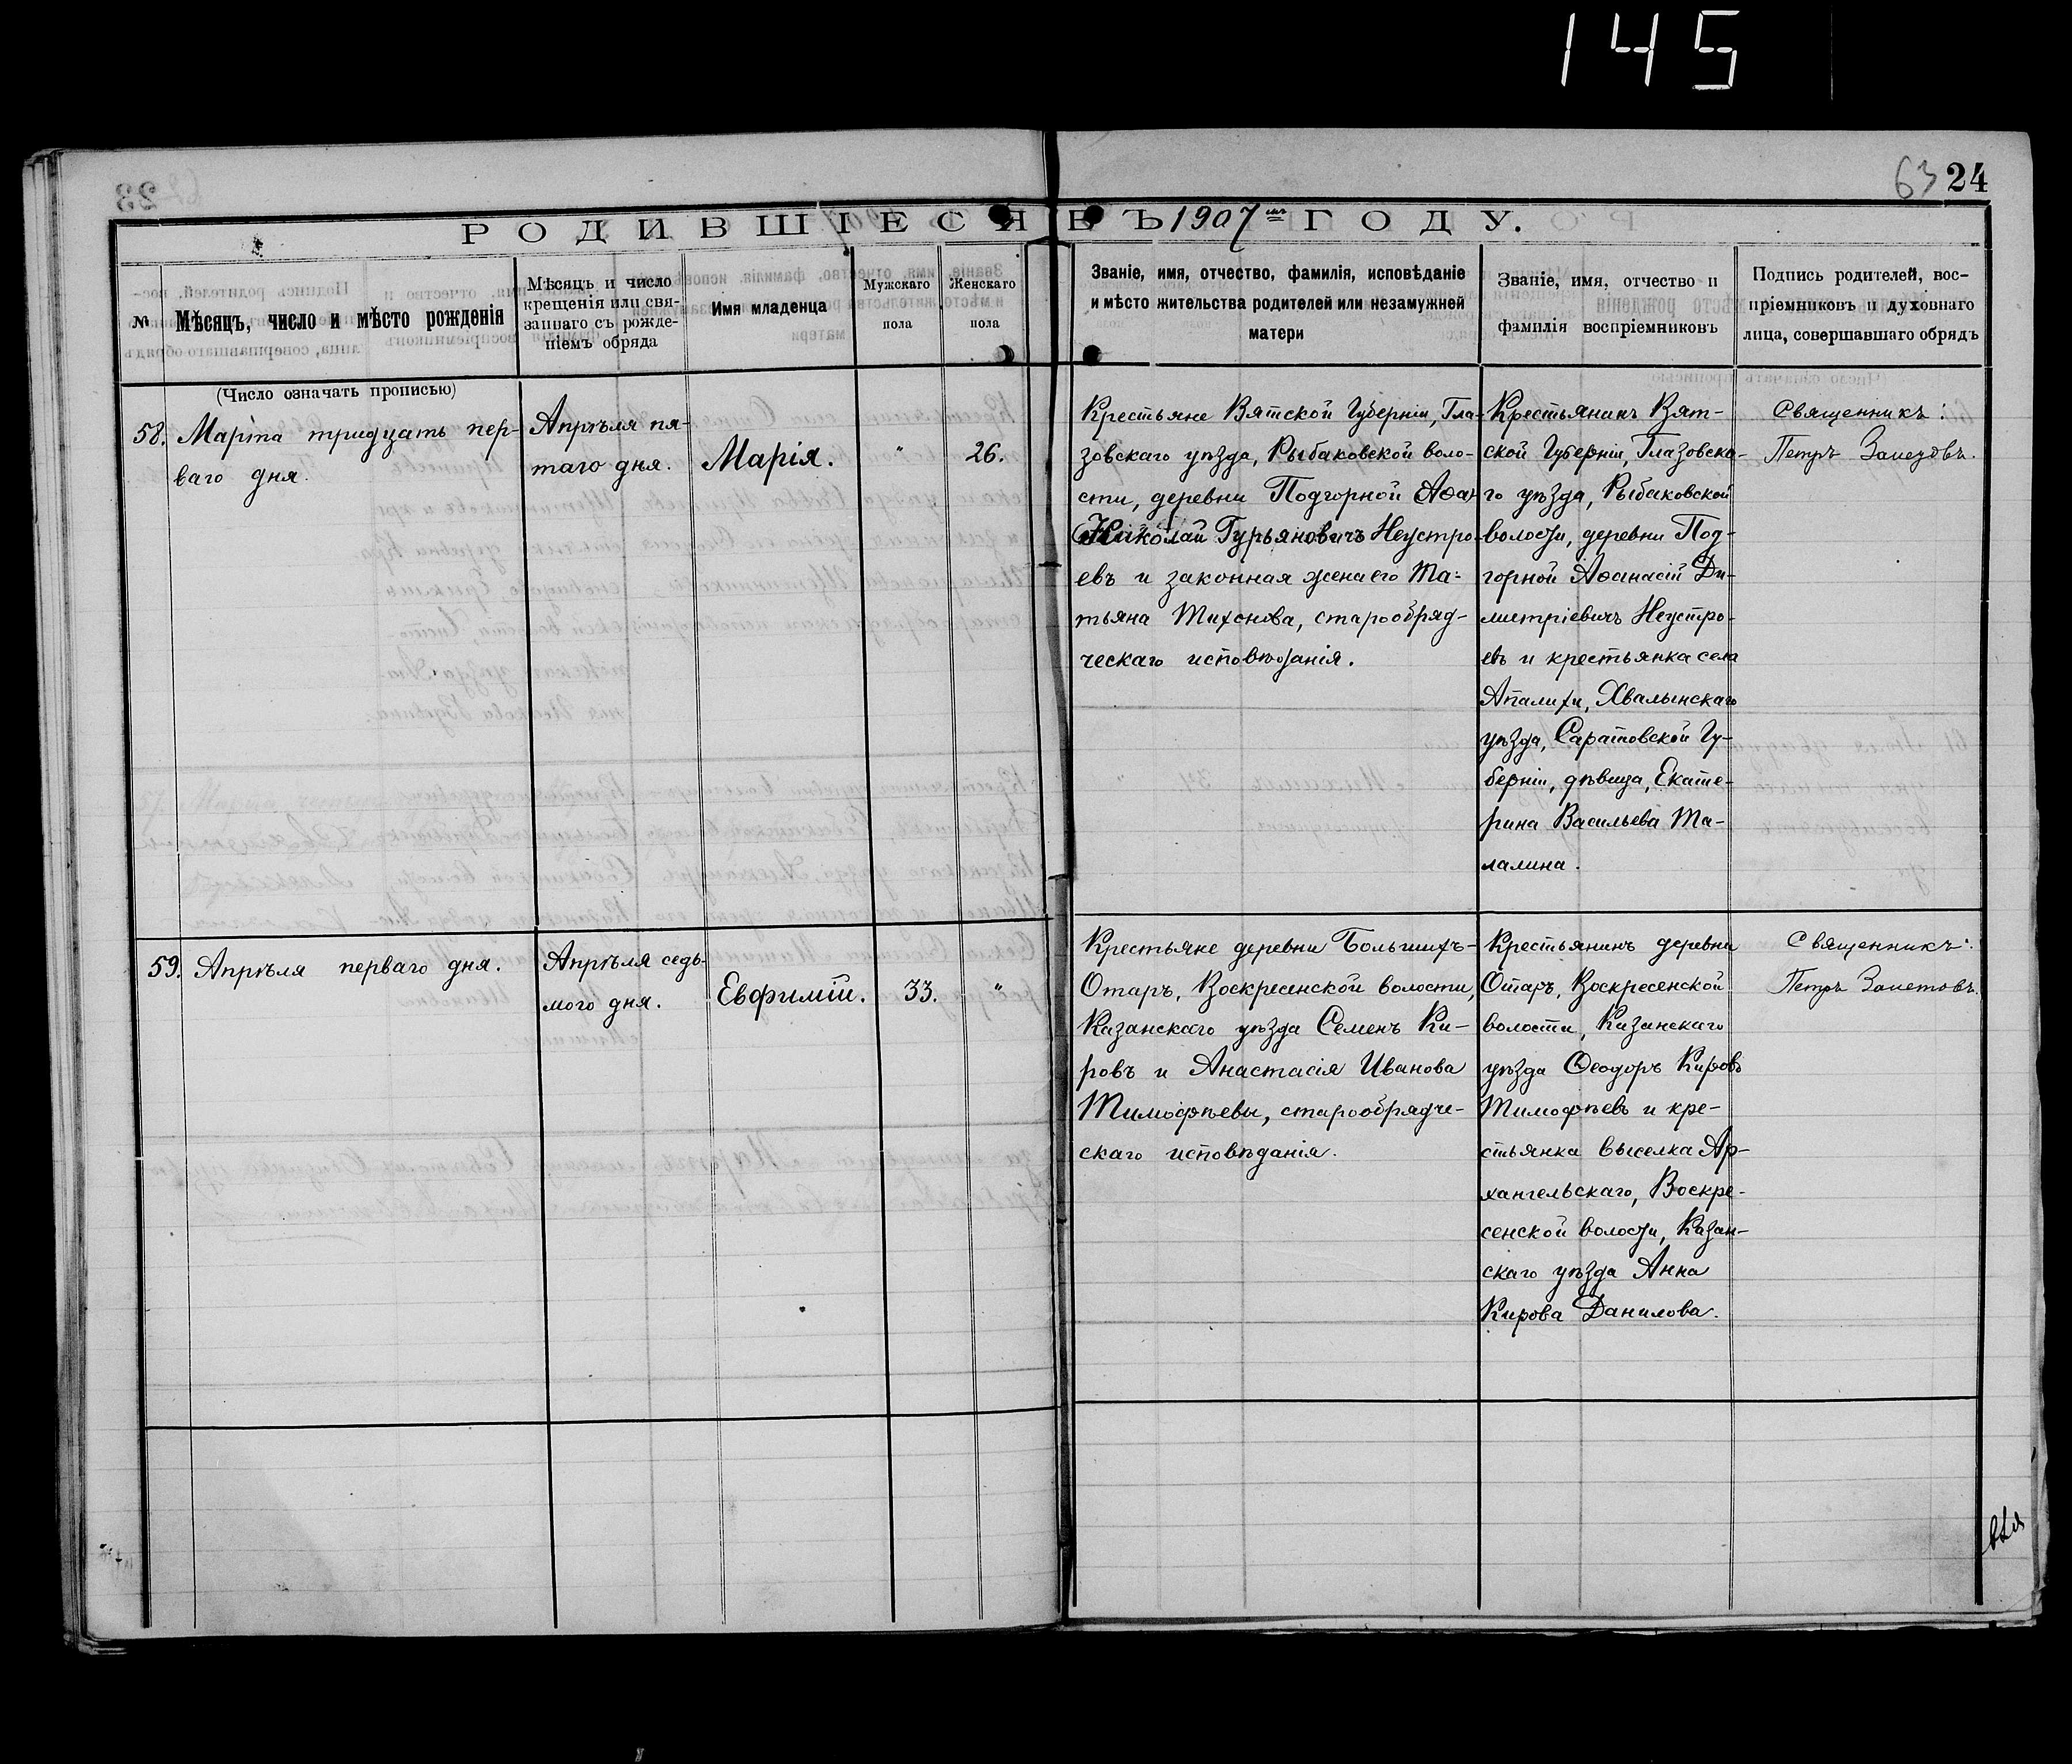 145
63 24
РОДИВШІЕСЯ ВЪ 1907мъ ГОДУ.
№
Мѣсяцъ, число и мѣсто рожденія
Мѣсяцъ и число
крещенія или свя-
заннаго съ рожде-
ніемъ обряда
Имя младенца
Мужскаго
пола
Женскаго
пола
Званіе, имя, отчество, фамилія, исповѣданіе
и мѣсто жительства родителей или незамужней
матери
Званіе, имя, отчество и
фамилія воспріемниковъ
Подпись родителей, вос-
пріемниковъ и духовнаго
лица, совершавшаго обрядъ
(Число означать прописью)
58.
Марта тридцать пер-
ваго дня.
Апрѣля пя-
таго дня.
Марія.
"
26.
Крестьяне Вятской Губерніи, Гла-
зовскаго уѣзда, Рыбаковской воло-
сти, деревни Подгорной Аѳа-
Николай Гурьяновичъ Неустро-
евъ и законная жена его Та-
тьяна Тихонова, старообряд-
ческаго исповѣданія.
Крестьянинъ Вят-
ской Губерніи, Глазовска-
го уѣзда, Рыбаковской
волости, деревни Под-
горной Аѳанасій Ди-
митріевичъ Неустро-
евъ и крестьянка села
Апалихи, Хвалынскаго
уѣзда, Саратовской Гу-
берніи, дѣвица, Екате-
рина Васильева Ма-
лалина.
Священникъ:
Петръ Заметовъ.
59.
Апрѣля перваго дня.
Апрѣля седь-
мого дня.
Евфимій.
33.
"
Крестьяне деревни Большихъ-
Отаръ, Воскресенской волости,
Казанскаго уѣзда Семенъ Ки-
ровъ и Анастасія Иванова
Тимофѣевы, старообрядче-
скаго исповѣданія.
Крестьянинъ деревни
Отаръ, Воскресенской
волости, Казанскаго
уѣзда Ѳеодоръ Кировъ
Тимофѣевъ и кре-
стьянка выселка Ар-
хангельскаго, Воскре-
сенской волости, Казан-
скаго уѣзда Анна
Кирова Данилова.
Священникъ:
Петръ Заметовъ.